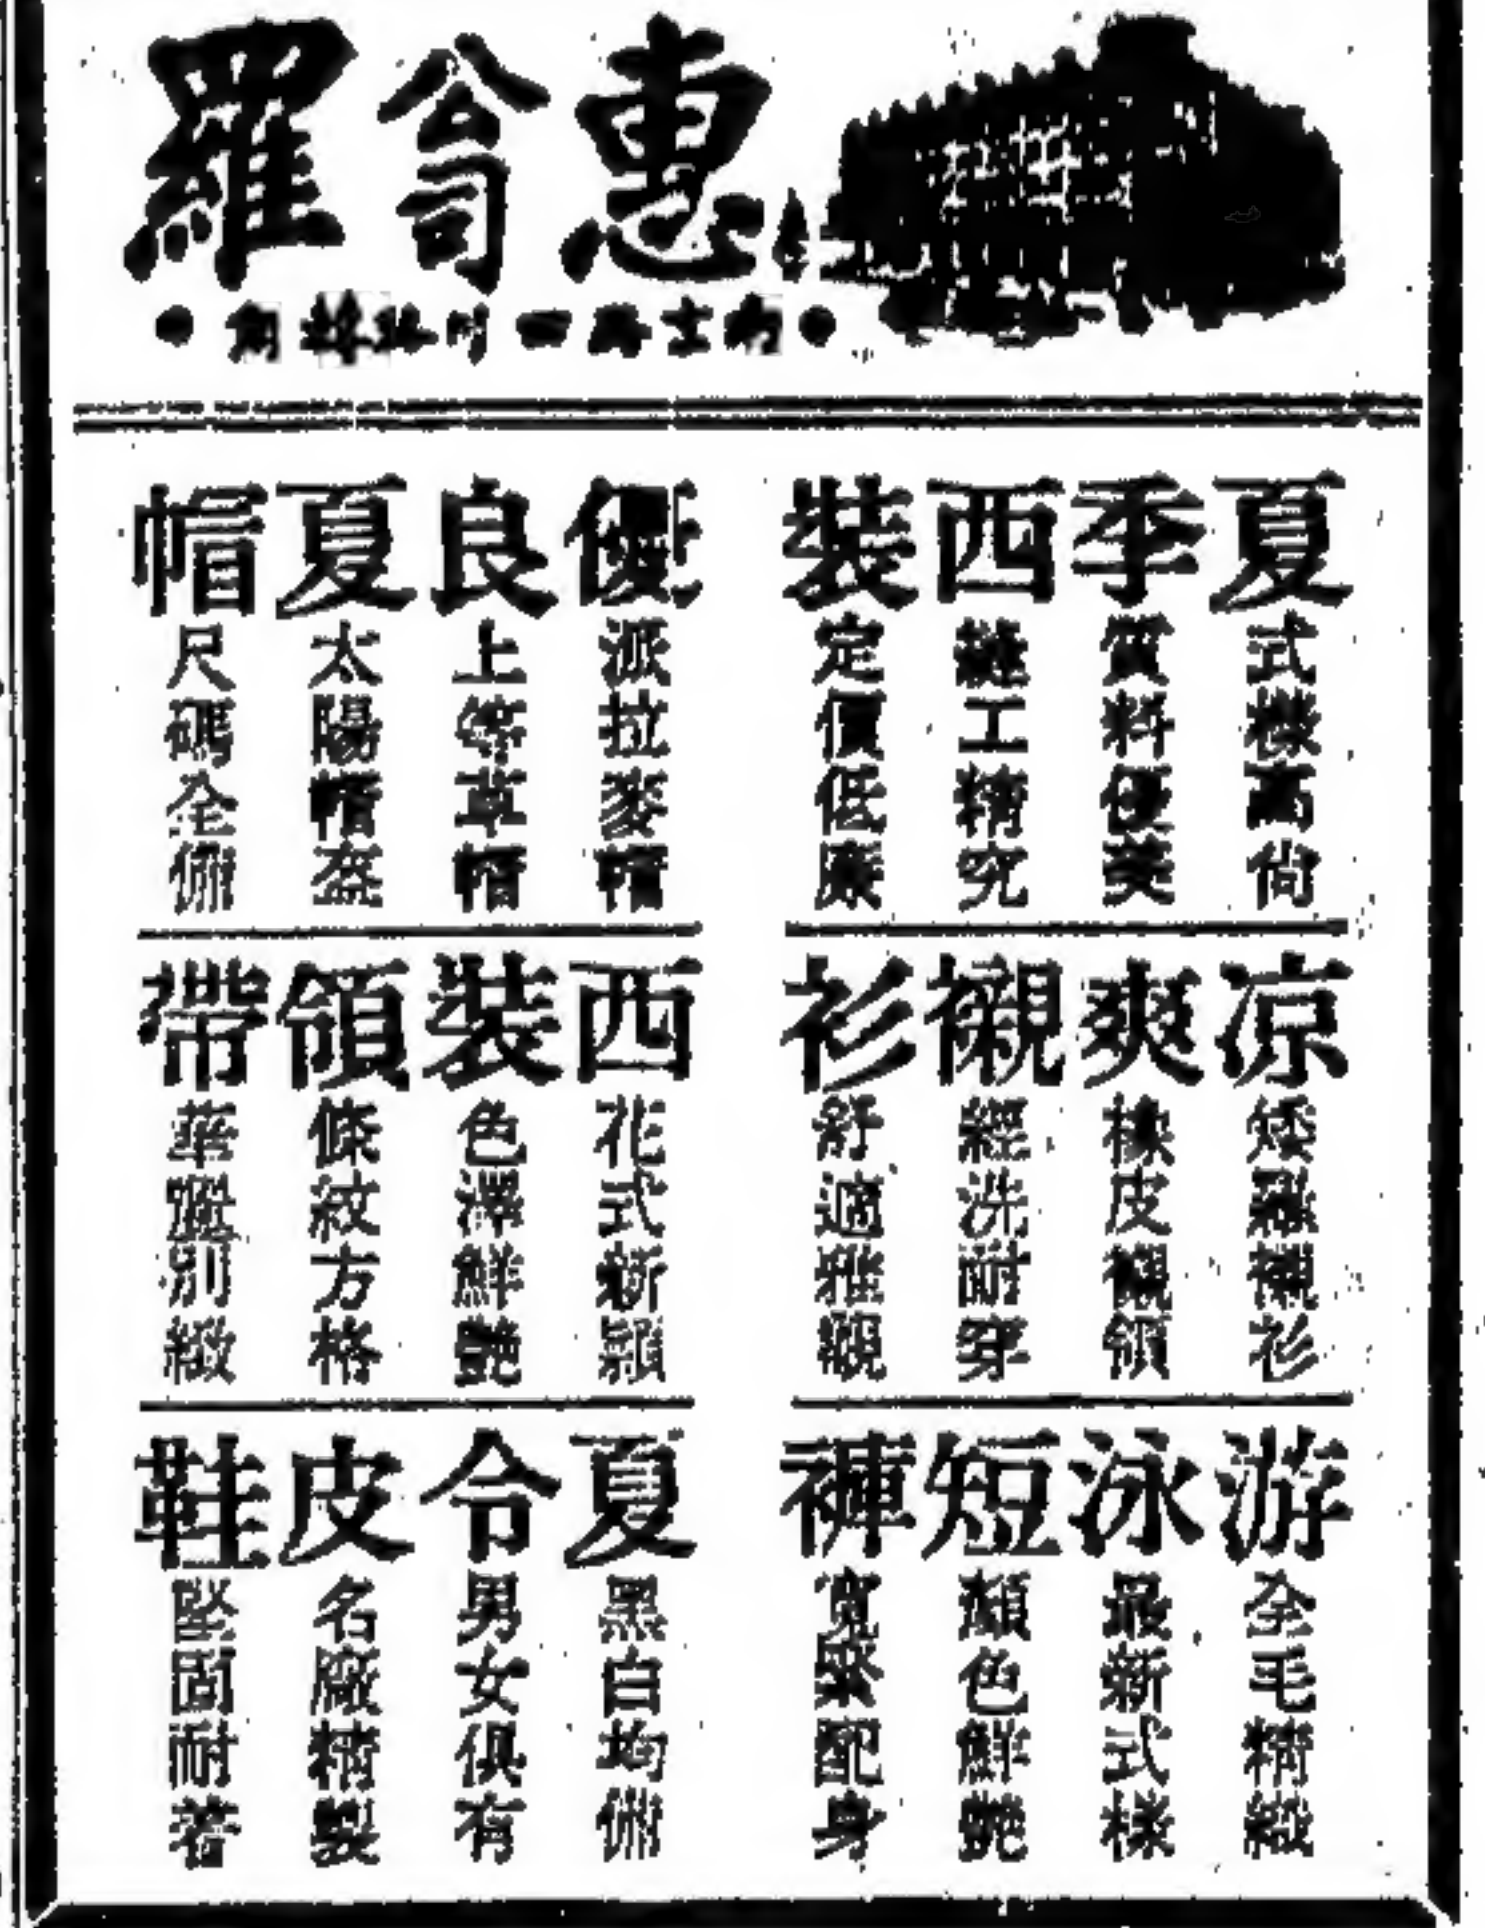 惠公司羅
南京路四川路轉角
夏季西裝
式樣高尚
質料優美
縫工精究
定價低廉
優良夏帽
派拉麥帽
上等草帽
太陽帽盔
尺碼全備
凉爽襯衫
矮領襯衫
橡皮襯領
經洗耐穿
舒適雅觀
西裝領帶
花式新穎
色澤鮮艷
條紋方格
華麗別緻
游泳短褲
全毛精緻
最新式樣
顏色鮮艷
寬緊配身
夏令皮鞋
黑白均備
男女俱有
名廠精製
堅固耐著